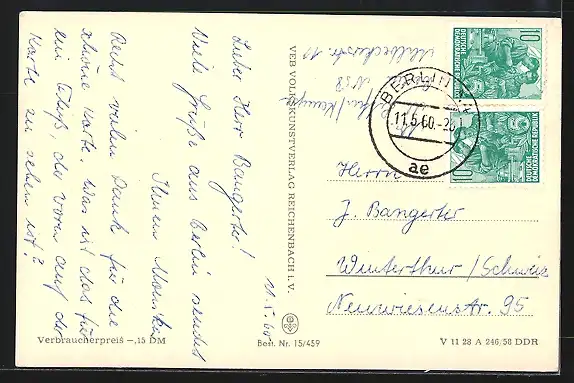 11.5.60.
Lieber Herr Bangerter!
Viele Grüße aus Berlin sendet
Ihnen
Recht vielen Dank für die
schöne Karte. Was ist das für
ein Fluß, der vorn auf der
Karte zu sehen ist?
Verbraucherpreis –,15 DM
VEB VOLKSKUNSTVERLAG REICHENBACH i. V.
Best. Nr. 15/459
N 58
BERLIN
11.5.60.
ae
10
DEUTSCHE
DEMOKRATISCHE REPUBLIK
10
DEUTSCHE
DEMOKRATISCHE REPUBLIK
Herrn
J. Bangerter
Winterthur/Schweiz
Neuwiesenstr. 95
V 11 28 A 246/58 DDR